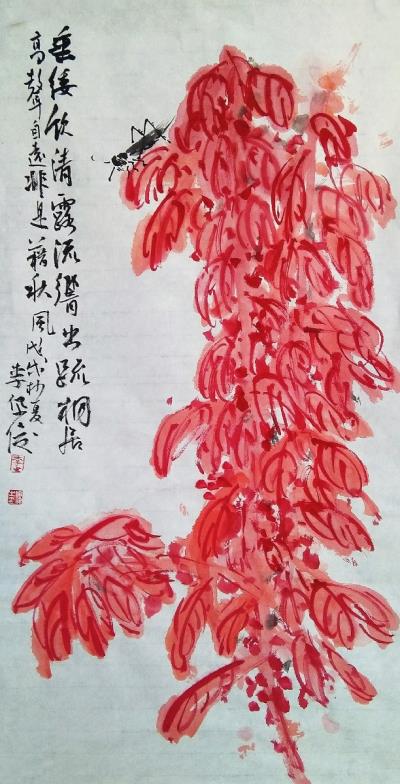 垂緌飲清露流響出疏桐居
高聲自遠非是藉秋風戊戌杪夏
李